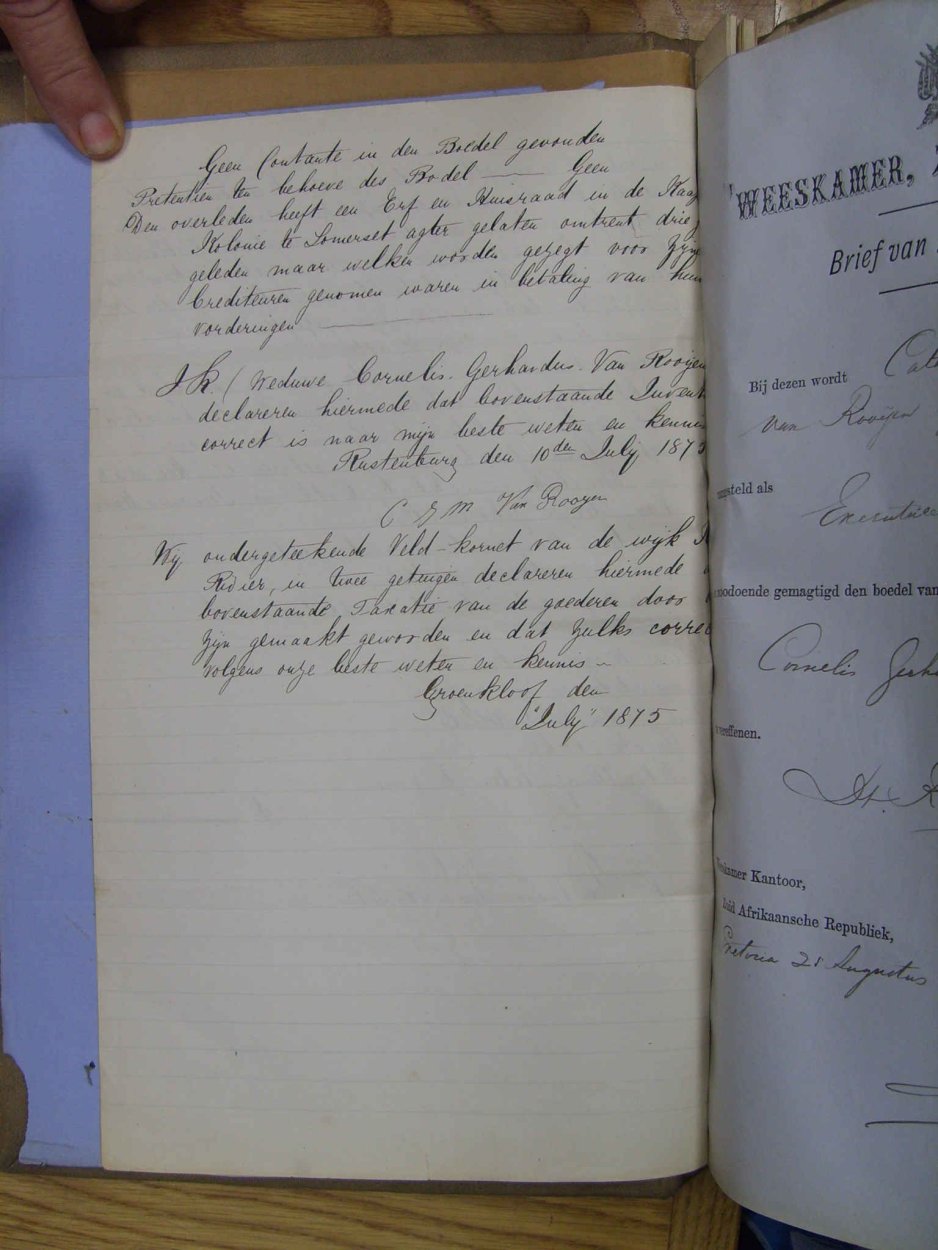 Geen Contante in den Boedel gevonden
Pretentien ten behoeve des Bodel —— Geen
Den overleden heeft een Erf en Huisraad in de Kaap
Kolonie te Somerset agter gelaten omtrent drie
geleden maar welken worden gezegt voor zyne
Crediteuren genomen waren in betaling van hun
vorderingen ——
Ik (Weduwe Cornelis. Gerhardus. Van Rooijen
declareren hiermede dat bovenstaande Invent
correct is naar mijn beste weten en kennis
Rustenburg den 10den July 1875
C E M Van Rooyen
Wij ondergeteekende Veld-kornet van de wijk
Rivier, in twee getuigen declareren hiermede
bovenstaande Taxatie van de goederen door
Zijn gemaakt geworden en dat zulks correc
volgens onze beste weten en kennis ~
Groenkloof den
"July" 1875
WEESKAMER,
Brief van
Bij dezen wordt Cata
van Rooijen
ngesteld als
Executrice
modoende gemagtigd den boedel van
Cornelis Gerha
vereffenen.
eskamer Kantoor,
Zuid Afrikaansche Republiek,
Pretoria 21 Augustus